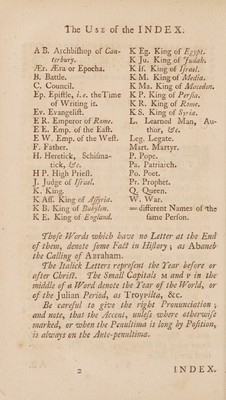 The USE of the INDEX.
A B. Archbishop of Can-
terbury.
Æs. Æra or Epocha.
B. Battle.
C. Council.
Ep. Epistle, i. e. the Time
of Writing it.
Ev. Evangelist.
E R. Emperor of Rome.
E E. Emp. of the East.
E W. Emp. of the West.
F. Father.
H. Heretick, Schisma-
tick, &c.
H P. High Priest.
J. Judge of Israel.
K. King.
K Ass. King of Assyria.
K B. King of Babylon.
K E. King of England.
K Eg. King of Egypt.
K Ju. King of Judah.
K Is. King of Israel.
K M. King of Media.
K Ma. King of Macedon.
K P. King of Persia.
K R. King of Rome.
K S. King of Syria.
L. Learned Man, Au-
thor, &c.
Leg. Legate.
Mart. Martyr.
P. Pope.
Pa. Patriarch.
Po. Poet.
Pr. Prophet.
Q. Queen.
W. War.
= different Names of the
same Person.
Those Words which have no Letter at the End
of them, denote some Fact in History; as Abaneb
the Calling of Abraham.
The Italick Letters represent the Year before or
after Christ. The Small Capitals M and P in the
middle of a Word denote the Year of the World, or
of the Julian Period, as Troypilta, &c.
Be careful to give the right Pronunciation;
and note, that the Accent, unless where otherwise
marked, or when the Penultima is long by Position,
is always on the Ante-penultima.
2
INDEX.